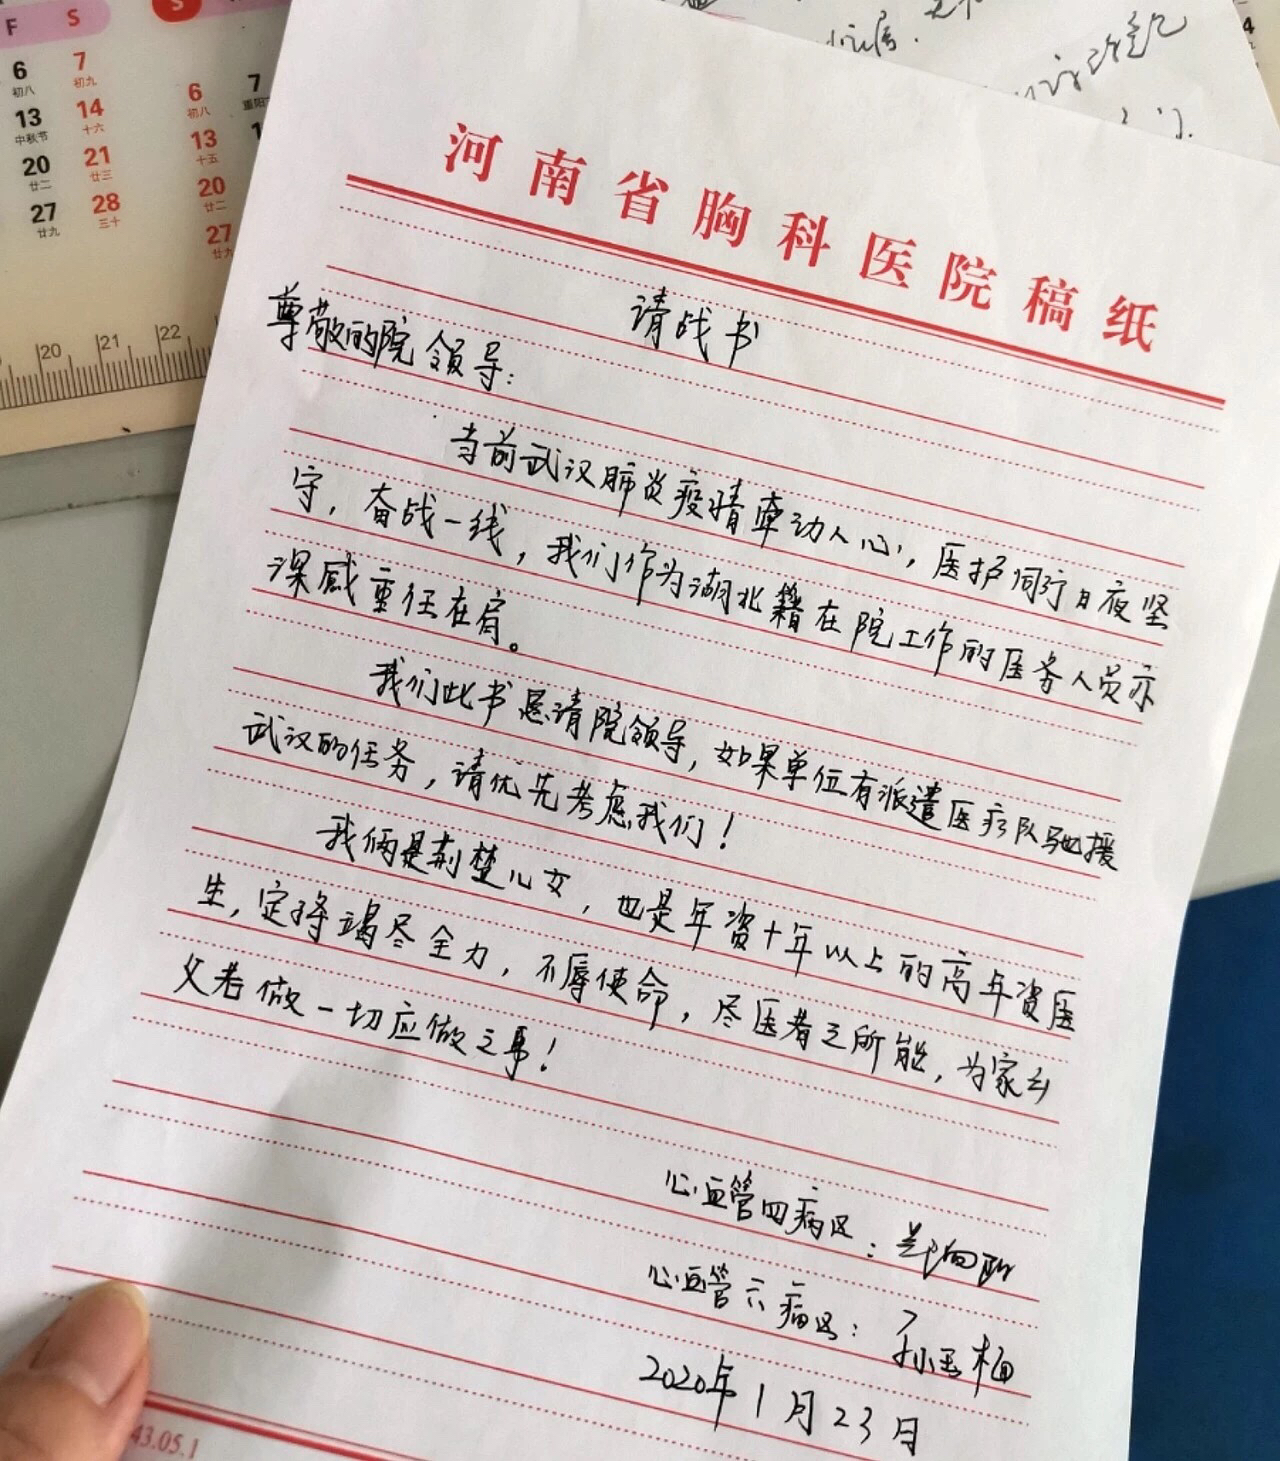 F S S
6 7
初八 初九
13 14
中秋节 十六
20 21
廿二 廿三
27 28
廿九 三十
6 7
初八
13
十五
20
廿二
27
20 21 22
河南省胸科医院稿纸
请战书
尊敬的院领导:
当前武汉肺炎疫情牵动人心,医护同行日夜坚
守,奋战一线,我们作为湖北籍在院工作的医务人员亦
深感重任在肩。
我们此书恳请院领导,如果单位有派遣医疗队驰援
武汉的任务,请优先考虑我们!
我俩是荆楚儿女,也是年资十年以上的高年资医
生,定将竭尽全力,不辱使命,尽医者之所能,为家乡
父老做一切应做之事!
心血管四病区:
心血管六病区:孙玉梅
2020年1月23日
43.05.1